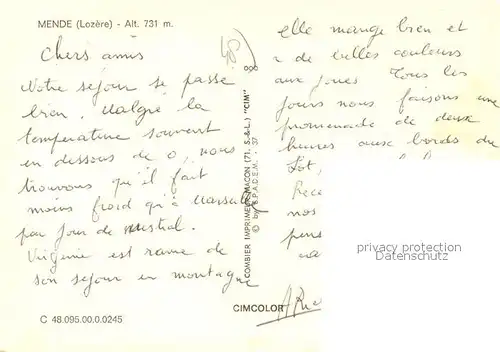 MENDE (Lozère) - Alt. 731 m.
Chers amis
Notre séjour se passe
bien. Malgré la
température souvent
en dessous de 0, nous
trouvons qu'il fait
moins froid qu'à Marseille
par jour de mistral.
Virginie est ravie de
son séjour en montagne
elle mange bien et
a de belles couleurs
aux joues Tous les
jours nous faisons une
promenade de deux
heures aux bords du
Lot,
Rece
nos
pens
COMBIER IMPRIMEUR MACON (71, S.-&-L.) "CIM"
© by S.P.A.D.E.M. 37
privacy protection
Datenschutz
CIMCOLOR
C 48.095.00.0.0245